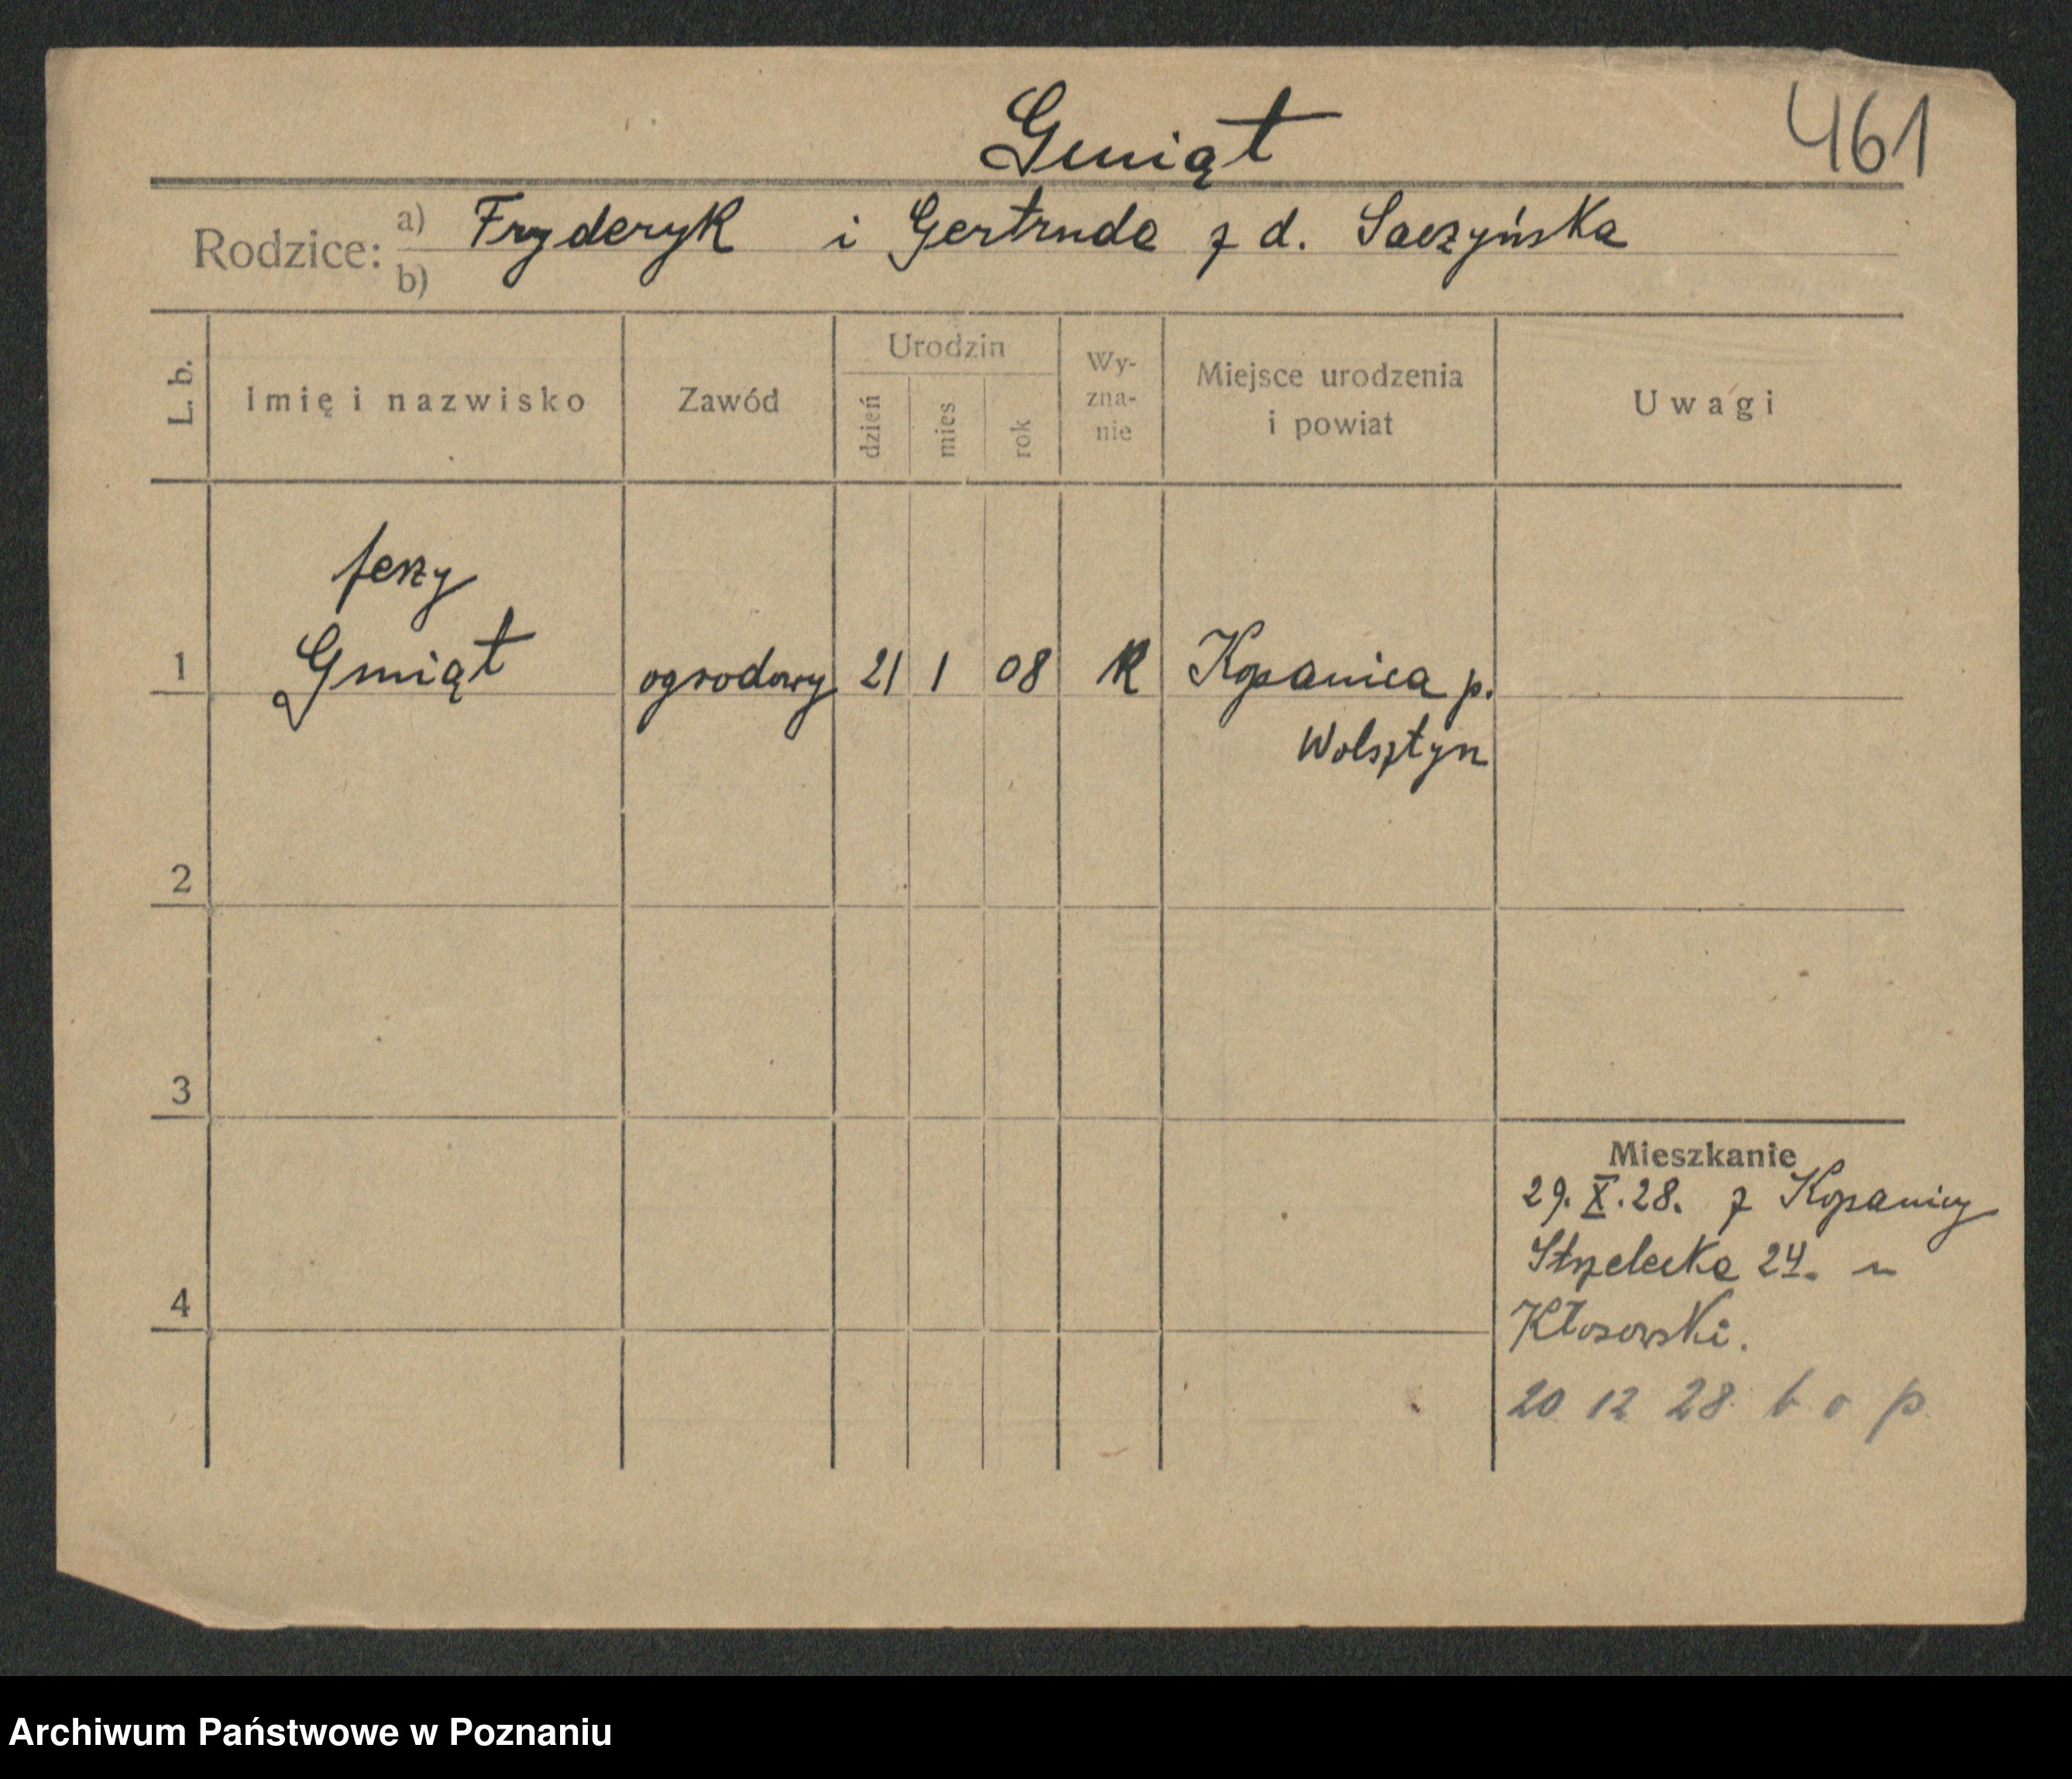 461
Gmiąt
Rodzice: a) Fryderyk i Gertruda z d. Saczyńska
b)
L. b. Imię i nazwisko Zawód Urodzin dzień mies. rok Wyznanie Miejsce urodzenia i powiat Uwagi
Jerzy
1 Gmiąt ogrodowy 21 1 08 K Kopanica p.
Wolsztyn
2
3
Mieszkanie
29. X. 28. z Kopanicy
Strzelecka 24. u
4
Kłosowski.
20 12 28 b o p
Archiwum Państwowe w Poznaniu